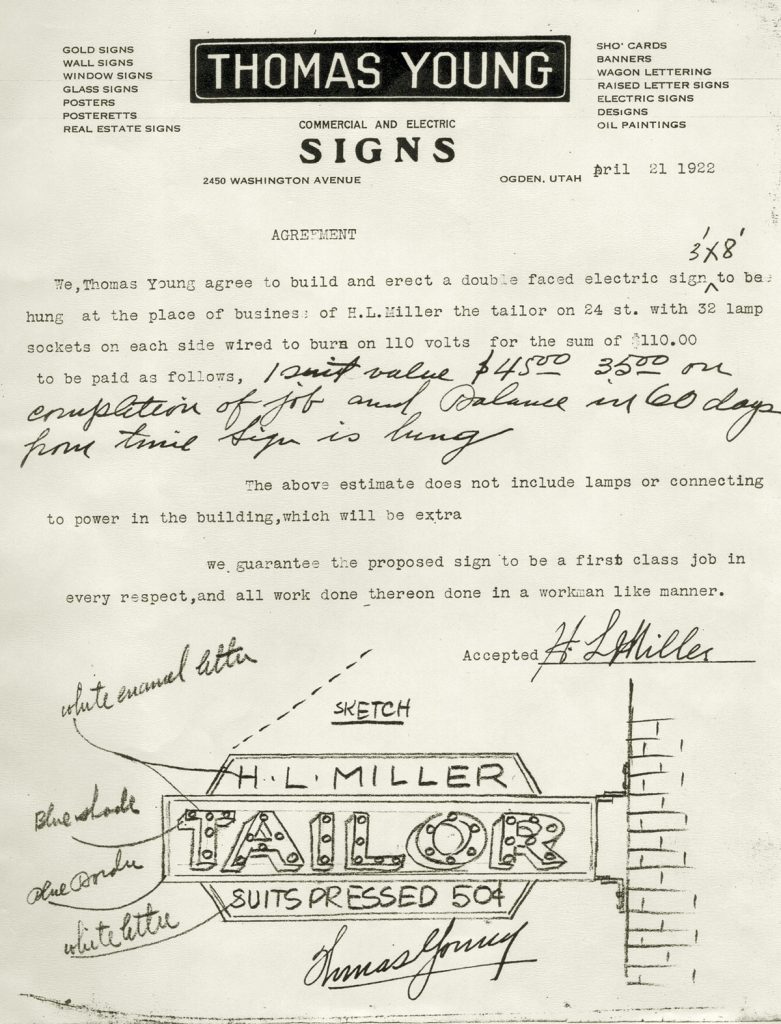 GOLD SIGNS
WALL SIGNS
WINDOW SIGNS
GLASS SIGNS
POSTERS
POSTERETTS
REAL ESTATE SIGNS
THOMAS YOUNG
COMMERCIAL AND ELECTRIC
SIGNS
2450 WASHINGTON AVENUE
OGDEN, UTAH
SHO' CARDS
BANNERS
WAGON LETTERING
RAISED LETTER SIGNS
ELECTRIC SIGNS
DESIGNS
OIL PAINTINGS
April 21 1922
AGREEMENT
3'X8'
We,Thomas Young agree to build and erect a double faced electric sign to be
hung at the place of business of H.L.Miller the tailor on 24 st. with 32 lamp
sockets on each side wired to burn on 110 volts for the sum of $110.00
to be paid as follows, 1 suit value $4500 3500 on
completion of job and Balance in 60 days
from time Sign is hung
The above estimate does not include lamps or connecting
to power in the building,which will be extra
we guarantee the proposed sign to be a first class job in
every respect,and all work done thereon done in a workman like manner.
Accepted H. L. Miller
white enamel letter
SKETCH
H.L. MILLER
Blue shade
TAILOR
Blue Border
SUITS PRESSED 50¢
white letter
Thomas Young